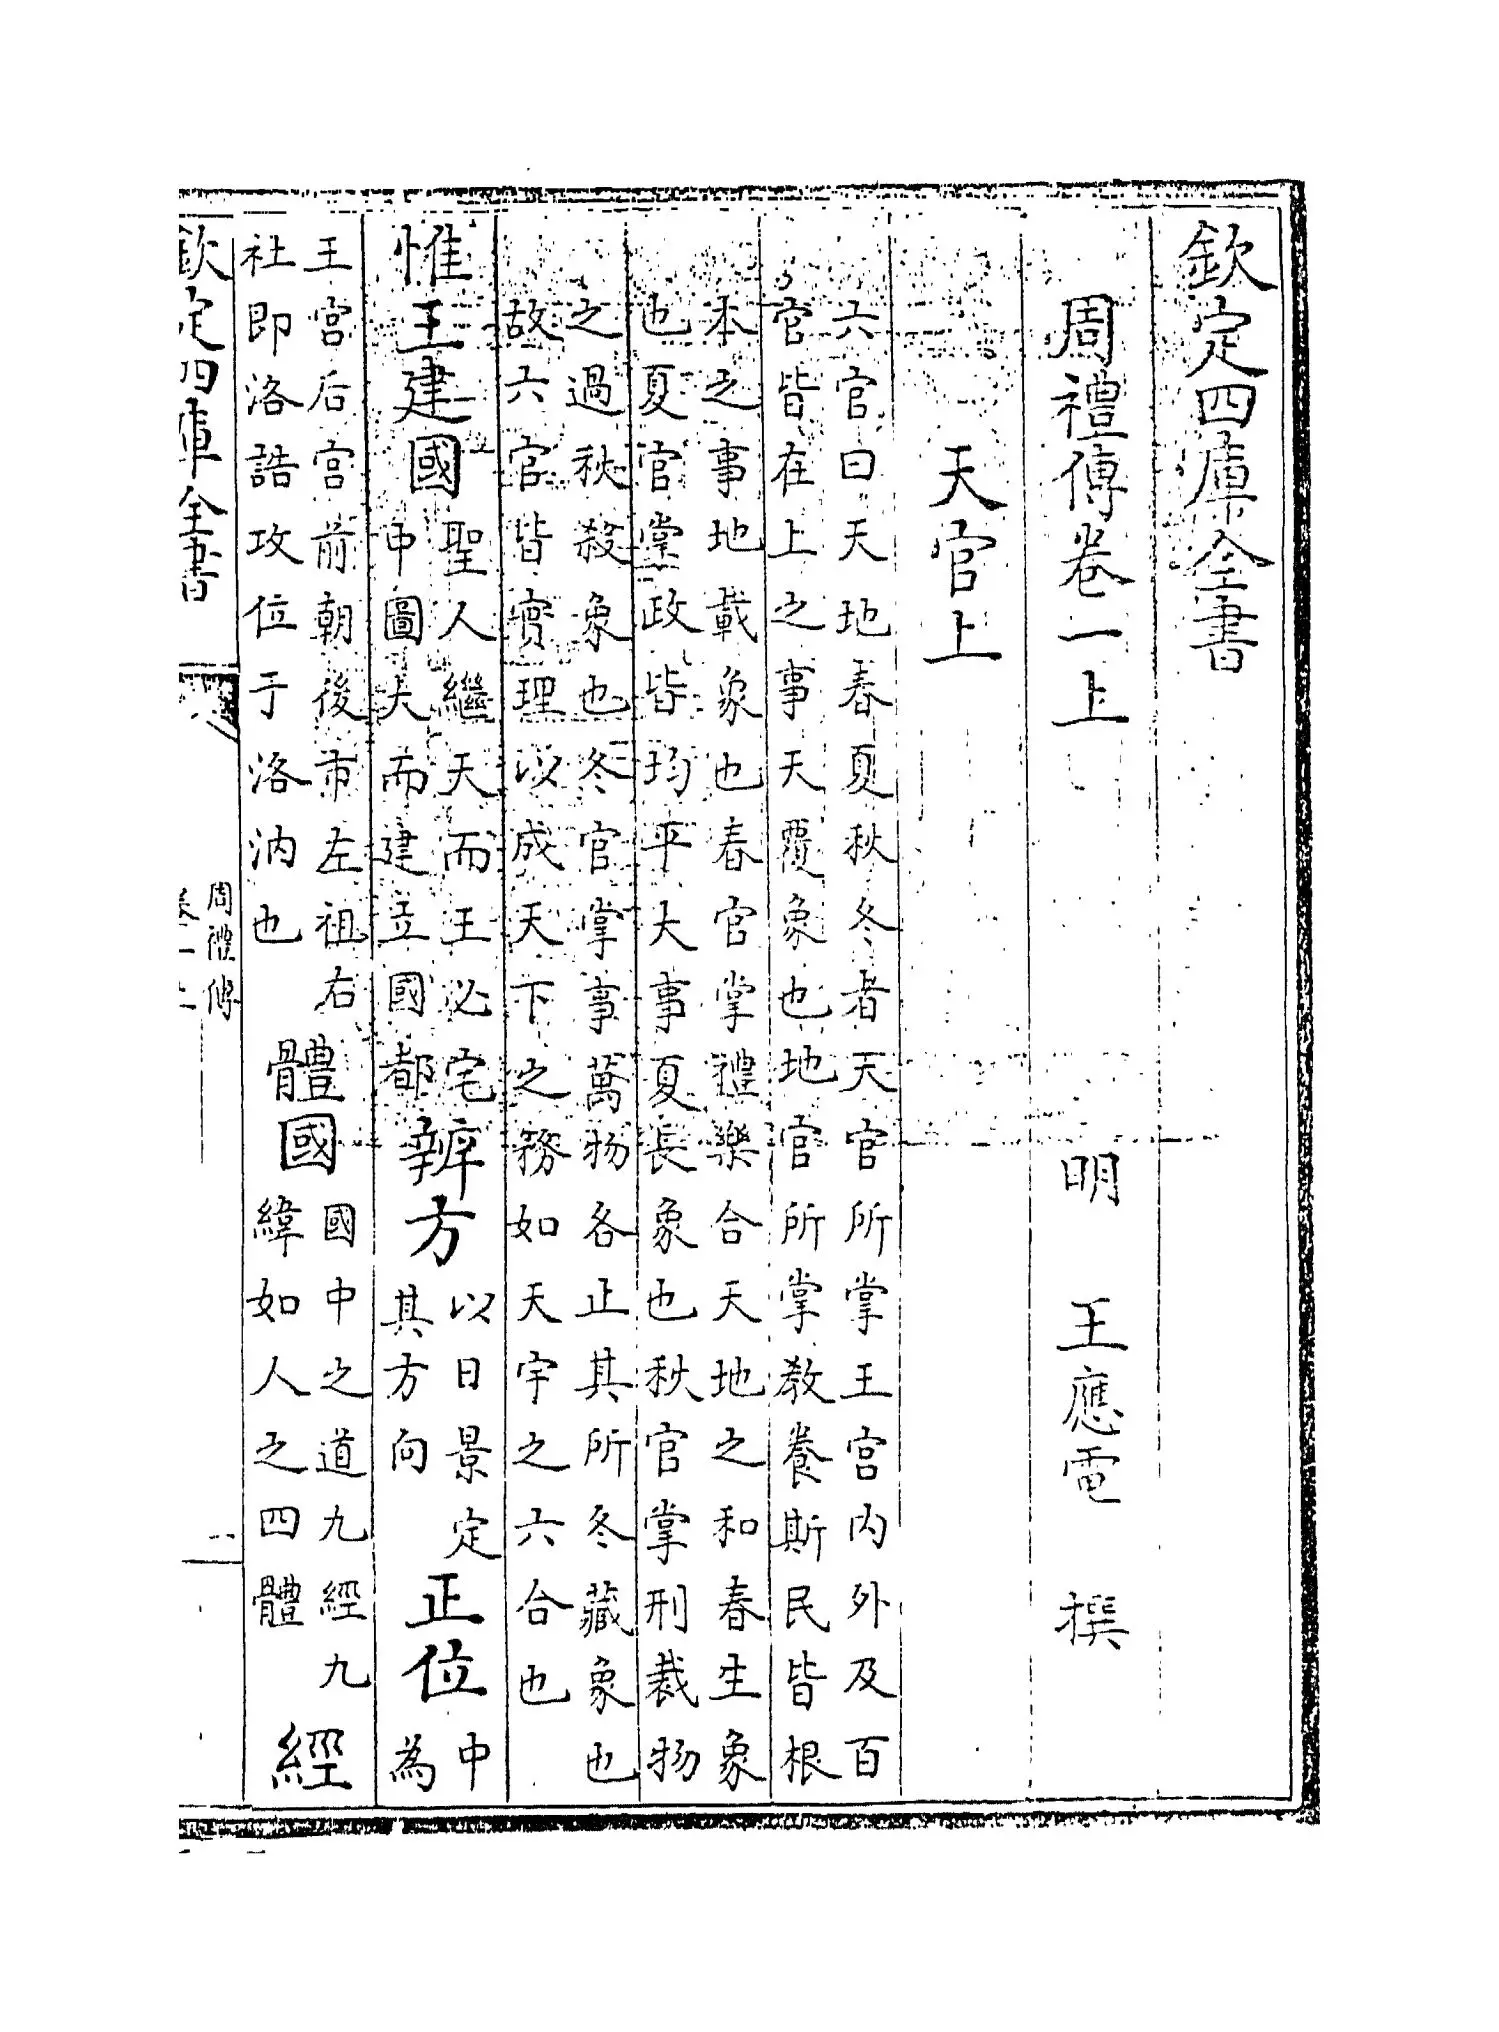 欽定四庫全書
周禮傳卷一上
明 王應電 撰
天官上
六官曰天地春夏秋冬者天官所掌王宫内外及百
官皆在上之事天覆象也地官所掌教養斯民皆根
本之事地載象也春官掌禮樂合天地之和春生象
也夏官掌政皆均平大事夏長象也秋官掌刑裁物
之過秋殺象也冬官掌事萬物各止其所冬藏象也
故六官皆實理以成天下之務如天宇之六合也
惟王建國
聖人繼天而王必宅
中圖大而建立國都
辨方
以日景定
其方向
正位
中
為
王宮后宮前朝後市左祖右
社即洛誥攻位于洛汭也
體國
國中之道九經九
緯如人之四體
經
欽定四庫全書
周禮傳
卷一上
一